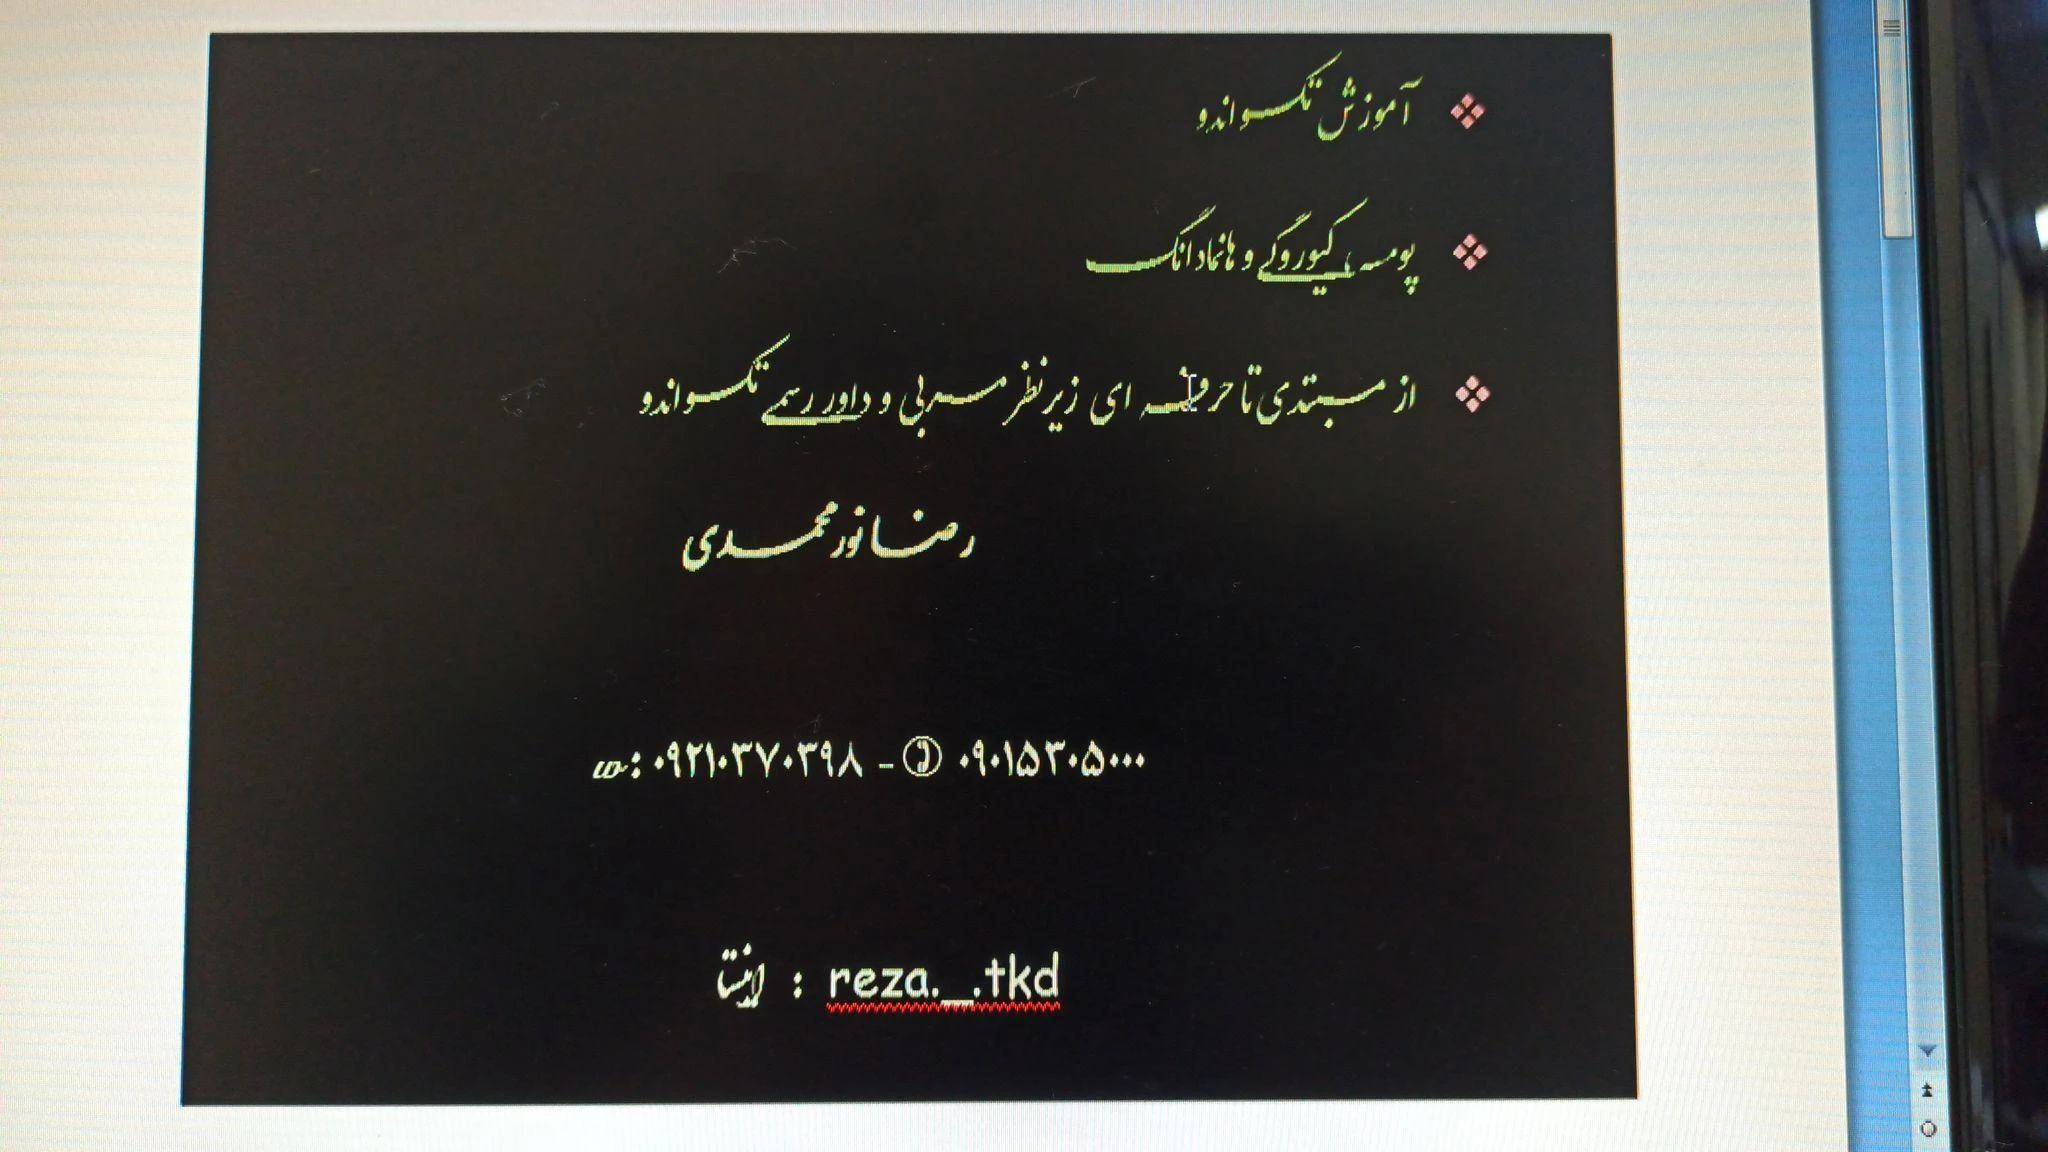 آموزش تکواندو
پومسه ، کیوروگی و هانمادانگ
از مبتدی تا حرفه ای زیر نظر مربی و داور رسمی تکواندو
رضا نورمحمدی
۰۹۲۱۰۳۷۰۳۹۸ - ۰۹۰۱۵۳۰۵۰۰۰
اینستا : reza._.tkd